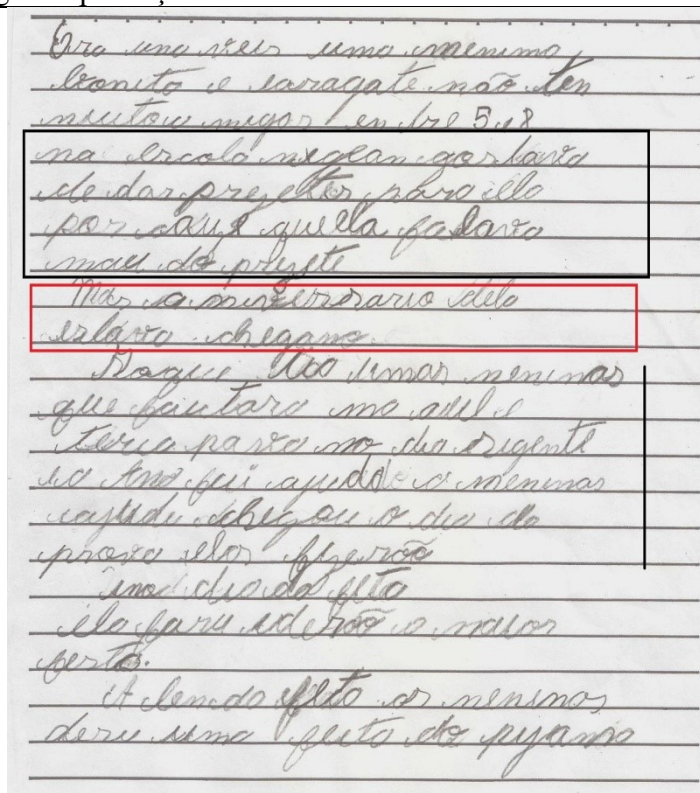 Era una veis uma menima
bonita e isaragate não ten
muitou migos entre 5,8
na escola nigean gostava
de dar prejetes para ella
por caus quella falava
mau do prejete
Mas a miversrario dela
estava chegano.
umas meninas
que fautara no aul e
teria parva no dia sigente
fui ajuda a meninas
chegou o dia da
prova elas fizerão
dia da feta
a maior
festa.
A lenda feta as meninas
deru uma feita do pyjama